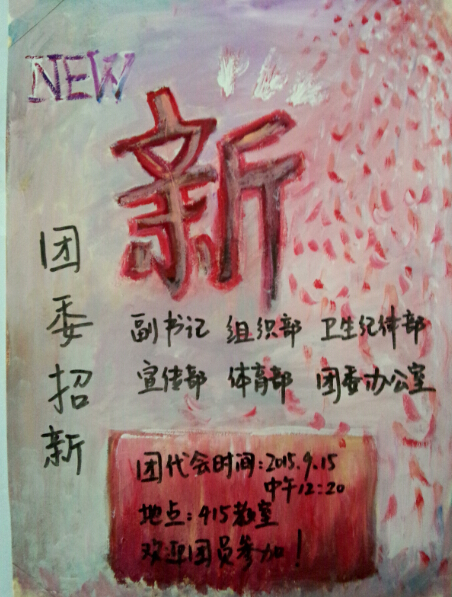 NEW
新
团委招新
副书记 组织部 卫生纪律部
宣传部 体育部 团委办公室
团代会时间:2015.9.15
中午12:20
地点:415教室
欢迎团员参加!